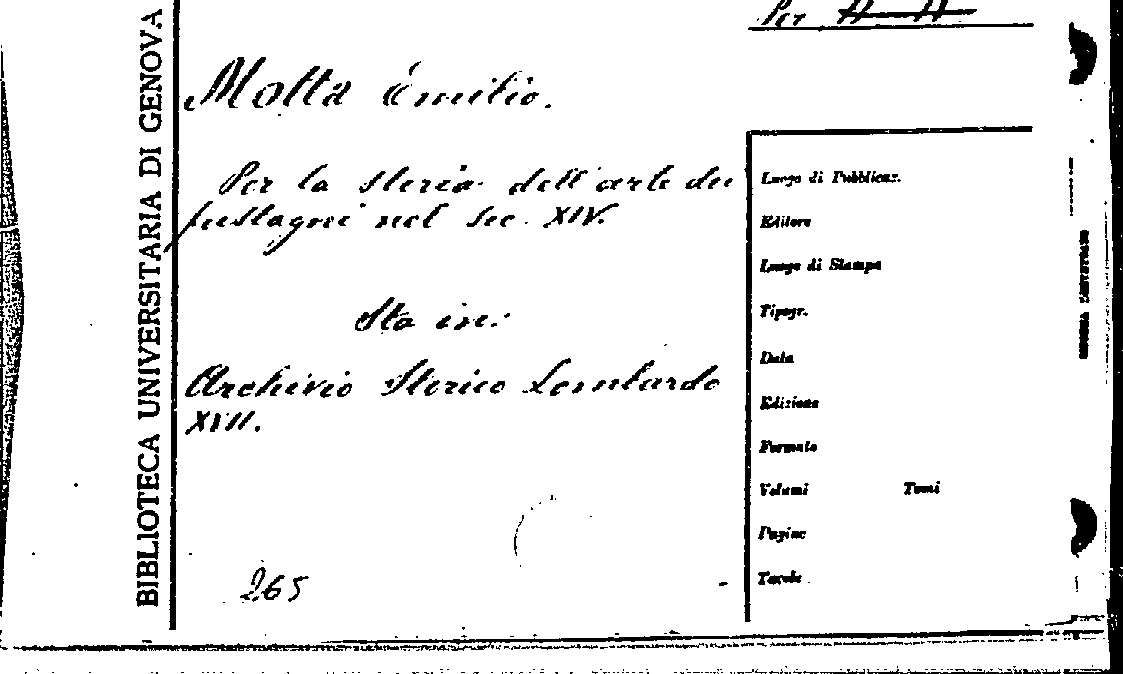 Per
BIBLIOTECA UNIVERSITARIA DI GENOVA
Motta Emilio.
Per la storia dell'arte dei
fustagni nel sec. XIV.
Sta in:
Archivio Storico Lombardo
XVII.
265
Luogo di Pubblicaz.
Editore
Luogo di Stampa
Tipogr.
Data
Edizione
Formato
Volumi Tomi
Pagine
Tavole